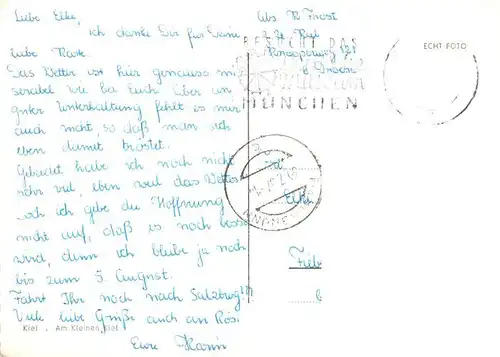 Liebe Elke,
ich danke Dir für Deine
liebe Karte.
Das Wetter ist hier genauso mi-
serabel wie bei Euch. Aber an
guter Unterhaltung fehlt es mir
auch nicht, so daß man sich
eben damit tröstet.
Gebadet habe ich noch nicht
sehr viel, eben weil das Wetter
doch ich gebe die Hoffnung
nicht auf, daß es noch besser
wird, denn ich bleibe ja noch
bis zum 5. August.
Fahrt Ihr noch nach Salzburg?
Viele liebe Grüße auch an Rosi
Eure Karin
Kiel . Am Kleinen Kiel
Abs. K. Frost
Kiel
BESUCHT DAS
MÜNCHEN
ECHT FOTO